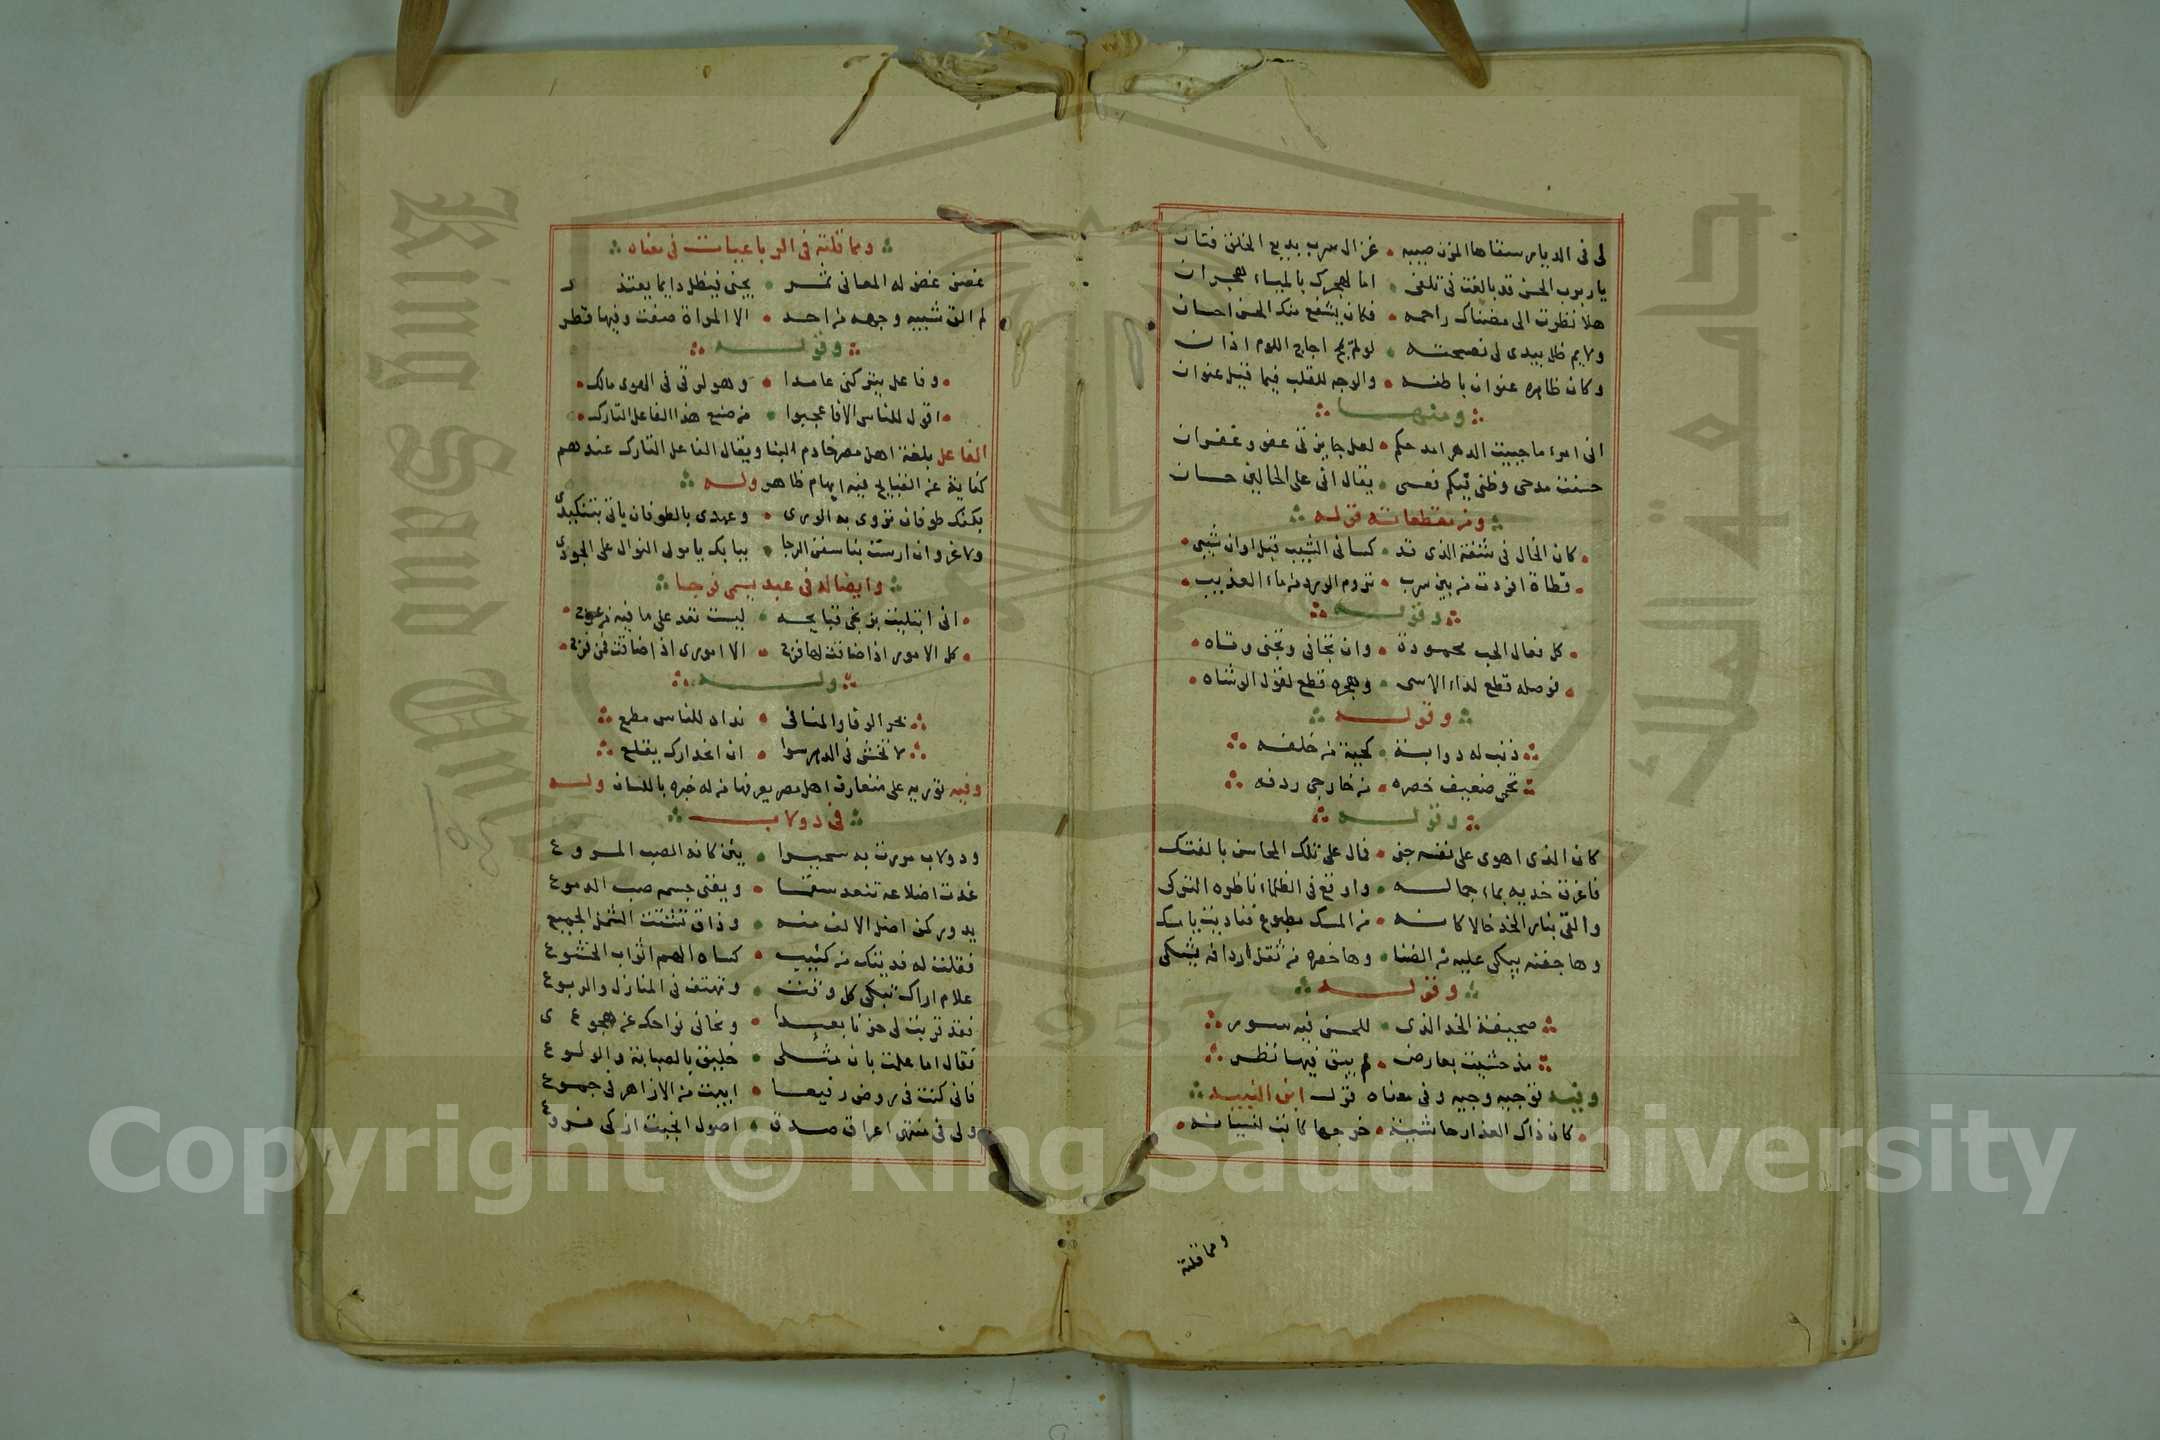 لى فى الديار سقاها المزن صيبه • غزال سرب بديع الخلق فتان
يا ربرب الحسن قد بالغت فى تلفى • اما لهجرك بالمياء هجران
هلا نظرت الى مضناك راحمه • فكان يشفع منك الحسن احسان
ولايم ظل يبدى لى نصيحته • لو لم اجاج اللوم اذان
وكان ظاهره عنوان باطنه • والوجه للقلب فيما قيل عنوان
ومنها
انى امرء ما جبيت الدهر امدحكم • لعل جايزتى عفو وغفران
حسنت مدحى وظنى فيكم فعسى • يقال انى على الحالين حسان
ومن مقطعاته قوله
كان الخال فى شفة الذى قد • كسانى الشيب قبل اوان شيبى
قطاة افردت من بين سرب • تروم الورد من ماء العذيب
وقوله
كل فعال الحب محمودة • وان تجافى وتجنى وتاه
فوصله قطع لداء الاسى • وهجره قطع لقول الوشاه
وقوله
ذنب له دوابة • كجبة من خلفه
تحمى ضعيف خصره • من خارجى ردفه
وقوله
كان الذى اهوى على نفسه جنى • فال على تلك المحاسن بالفتك
فاغرق خديه بماء جماله • واوقع فى الظلماء ناظره التركى
والقى بنار الخد خالا كانه • من المسك مطبوع فناديت يا مسك
وها جفنه يبكى عليه من الضنا • وها خصره من ثقل اردافه يشكى
وقوله
صحيفة الخد الذى • للحسن فيه سور
مذ حشيت بعارض • لم يبق فيها نظر
وفيه توجيه وجيه وفى معناه قول ابن النبيه
كان ذاك العذار حاشية • خرجها كاتب لنسيانه
ومما قلته
ومما قلته فى الرباعيات فى معناه
غصن غض له المعانى ثمر • يجنى فيظل دايما يعتذر
لم الق شبيه وجهه من احد • الا المراة صفت وفيها قطر
وقوله
وفاعل يتركنى عامدا • وهو لرقى فى الهوى مالك
اقول للناس الا فاعجبوا • من صنع هذا الفاعل التارك
الفاعل بلغة اهل مصر خادم البنا ويقال الفاعل التارك عندهم
كناية عن القبايح فيه ايهام ظاهر وله
بكفك طوفان تروى به الورى • وعهدى بالطوفان ياتى بتنكيدى
ولا غرو ان ارست بنا سفن الرجا • ببابك يا مولى النوال على الجودى
وايضا له فى عبد يسمى فرجا
انى ابتليت بزنجى قبايحه • ليست تعد على ما فيه من عوج
كل الامور اذا ضاقت لها فرج • الا امورى اذا ضاقت فمن فرج
وله
بحر الوفا والمنافى • نداه للناس مطمع
لا تخش فى الدهر سوا • ان اخدارك يقلع
وفيه تورية على متعارف اهل مصر يعرفها من له خبره باللسان وله
فى دولاب
ودولاب مررت به سحيرا • يئن كانه الصب المروع
غدت اضلاعه تنعد سقما • ويفنى جسمه صب الدموع
يدور كمن اضل الالف منه • وذاق تشتت الشمل الجميع
فقلت له فديتك من كئيب • كساه الهم اثواب الخشوع
علام اراك تبكى كل وقت • وتهتف فى المنازل والربوع
فقد قربت لى حزنا بعيدا • ونحانى نواحك عن هجوعى
فقال اما علمت بان مثلى • خليق بالصبابة والولوع
فانى كنت فى روض رفيعا • ابيت من الازاهر فى جموع
ولى فى منتهى اعراق صدق • اصول انجبت ازكى فروع
Copyright © King Saud University
King Saud University
1957